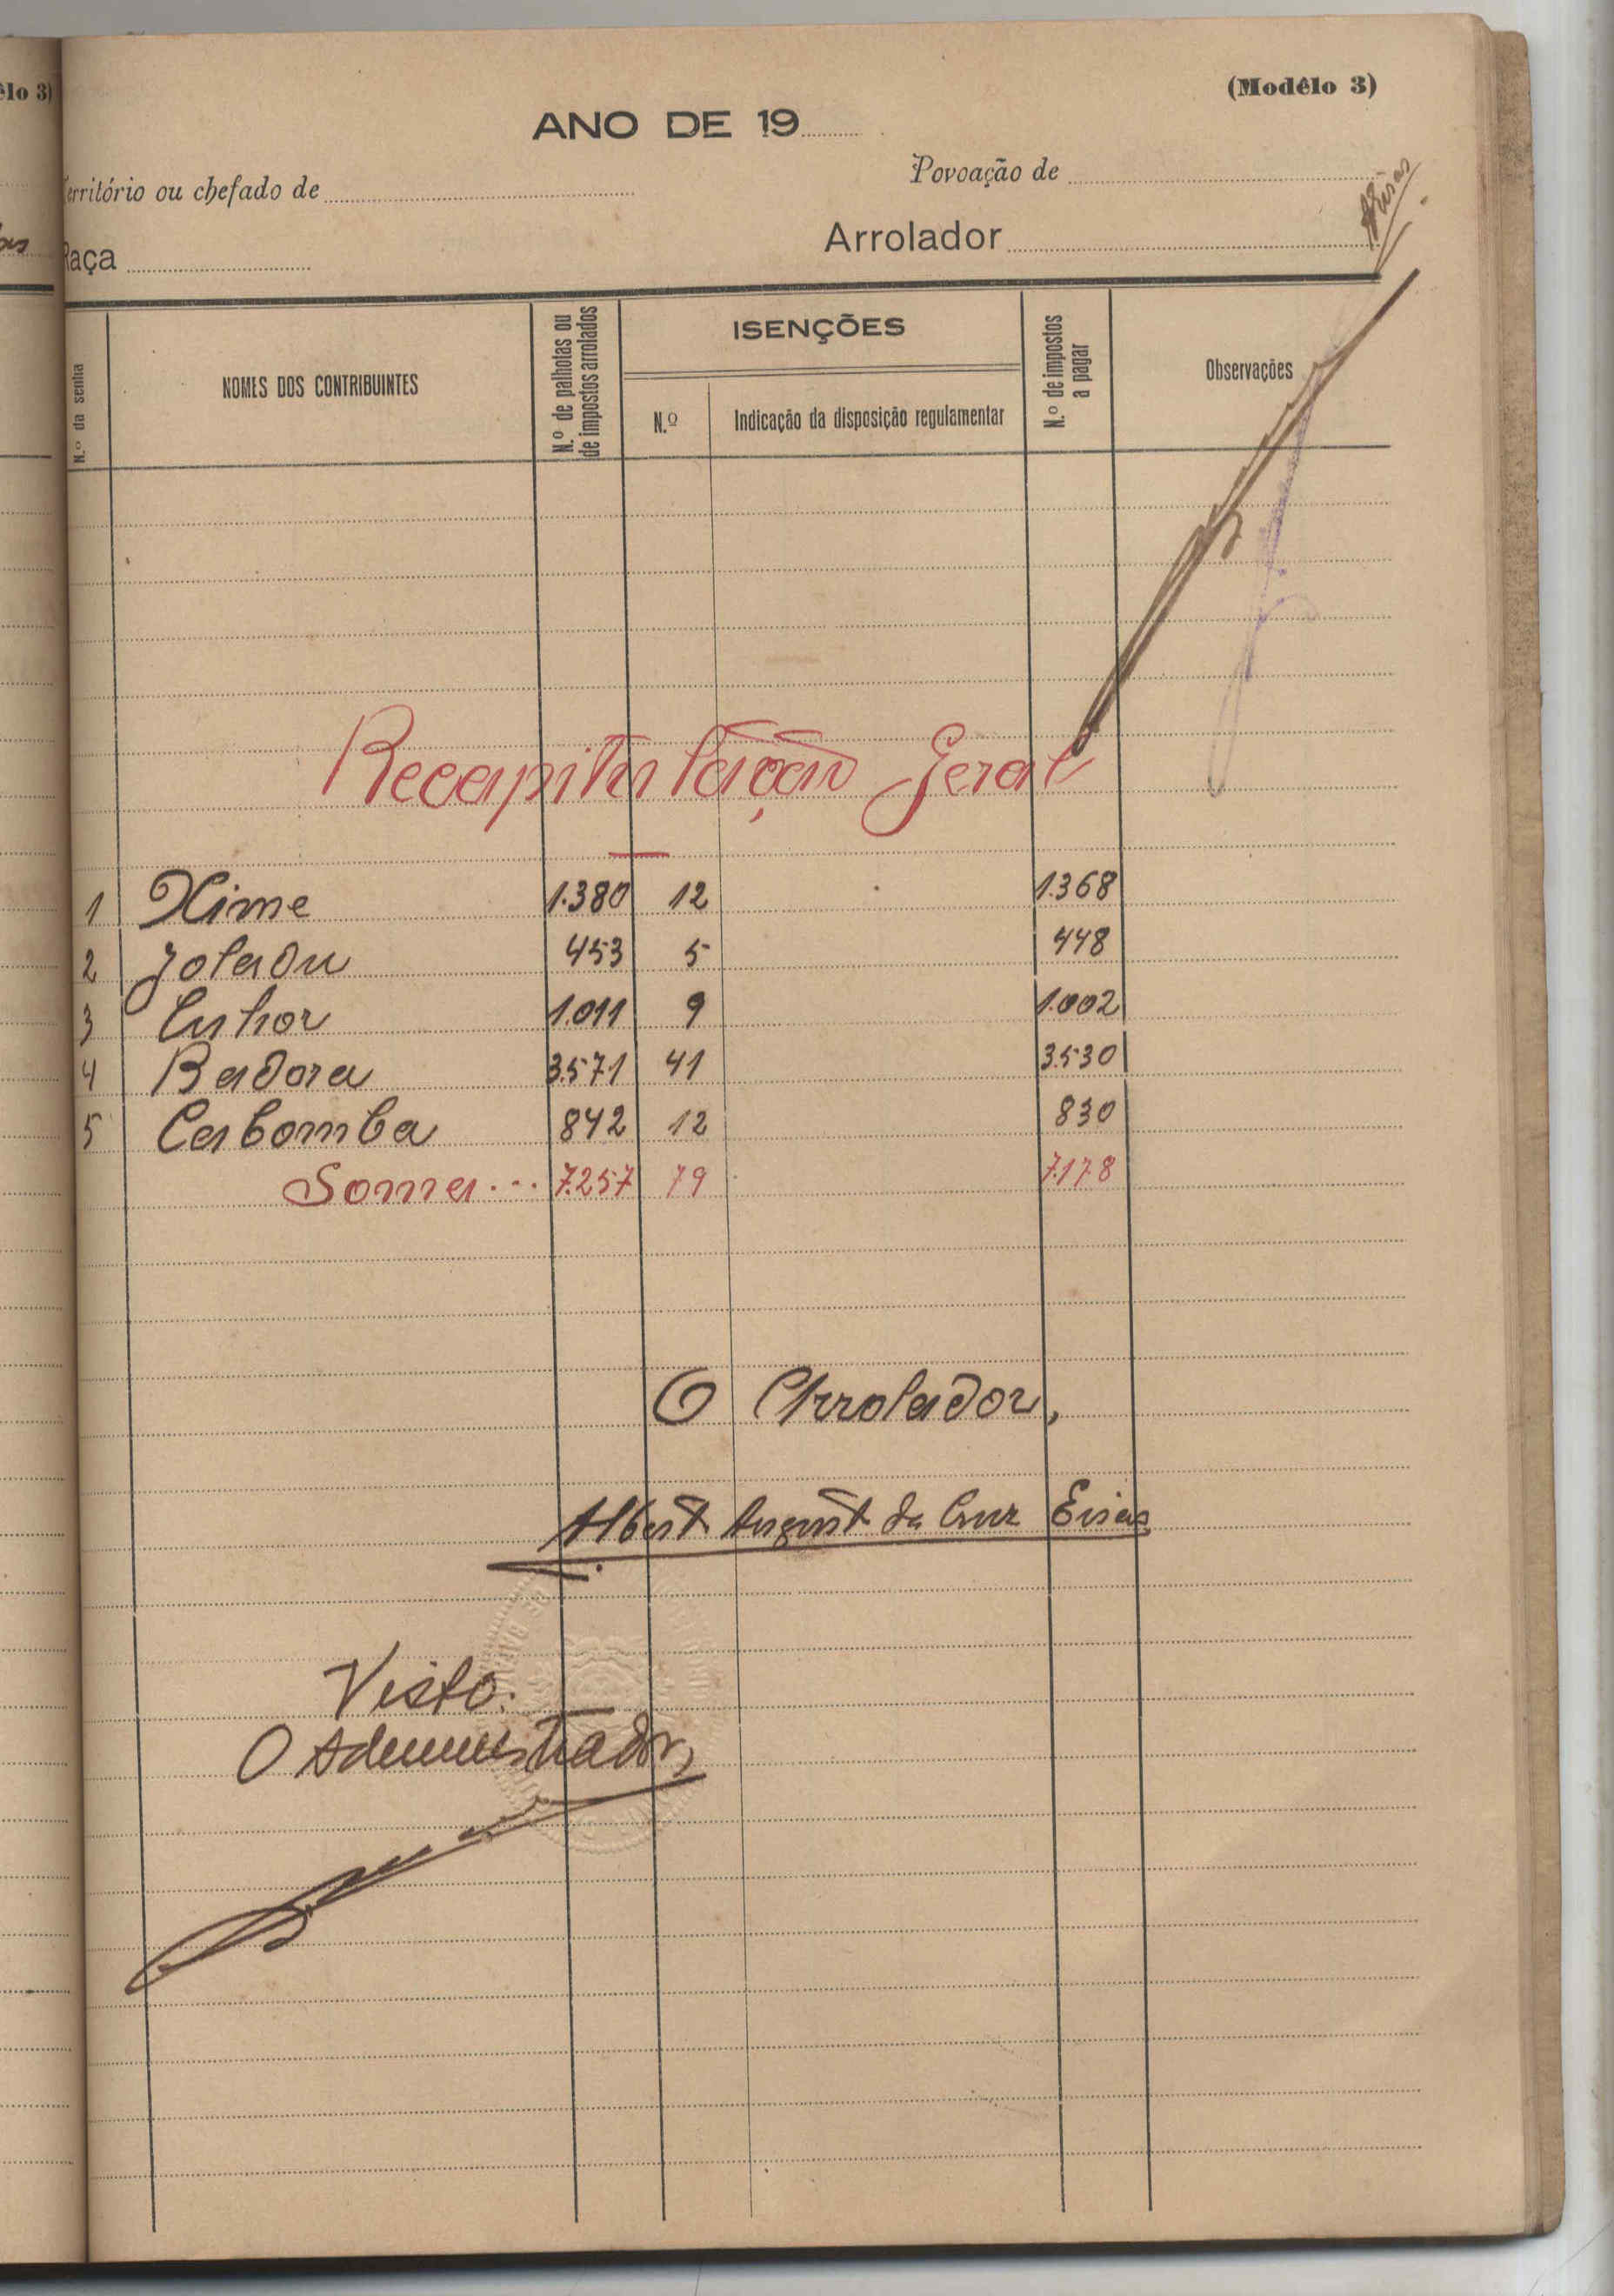 êlo 3)
(Modêlo 3)
ANO DE 19
Povoação de
Território ou chefado de
Arrolador
Raça
N.º da senha
NOMES DOS CONTRIBUINTES
N.º de palhotas ou de impostos arrolados
ISENÇÕES
N.º
Indicação da disposição regulamentar
N.º de impostos a pagar
Observações
Recapitulação Geral
1 Xime 1.380 12 1.368
2 Joladu 453 5 448
3 Cuhor 1.011 9 1.002
4 Badora 3.571 41 3.530
5 Casbomba 842 12 830
Soma... 7.257 79 7.178
O Arrolador,
Alberto Augusto da Cruz Eiras
Visto:
O Administrador,